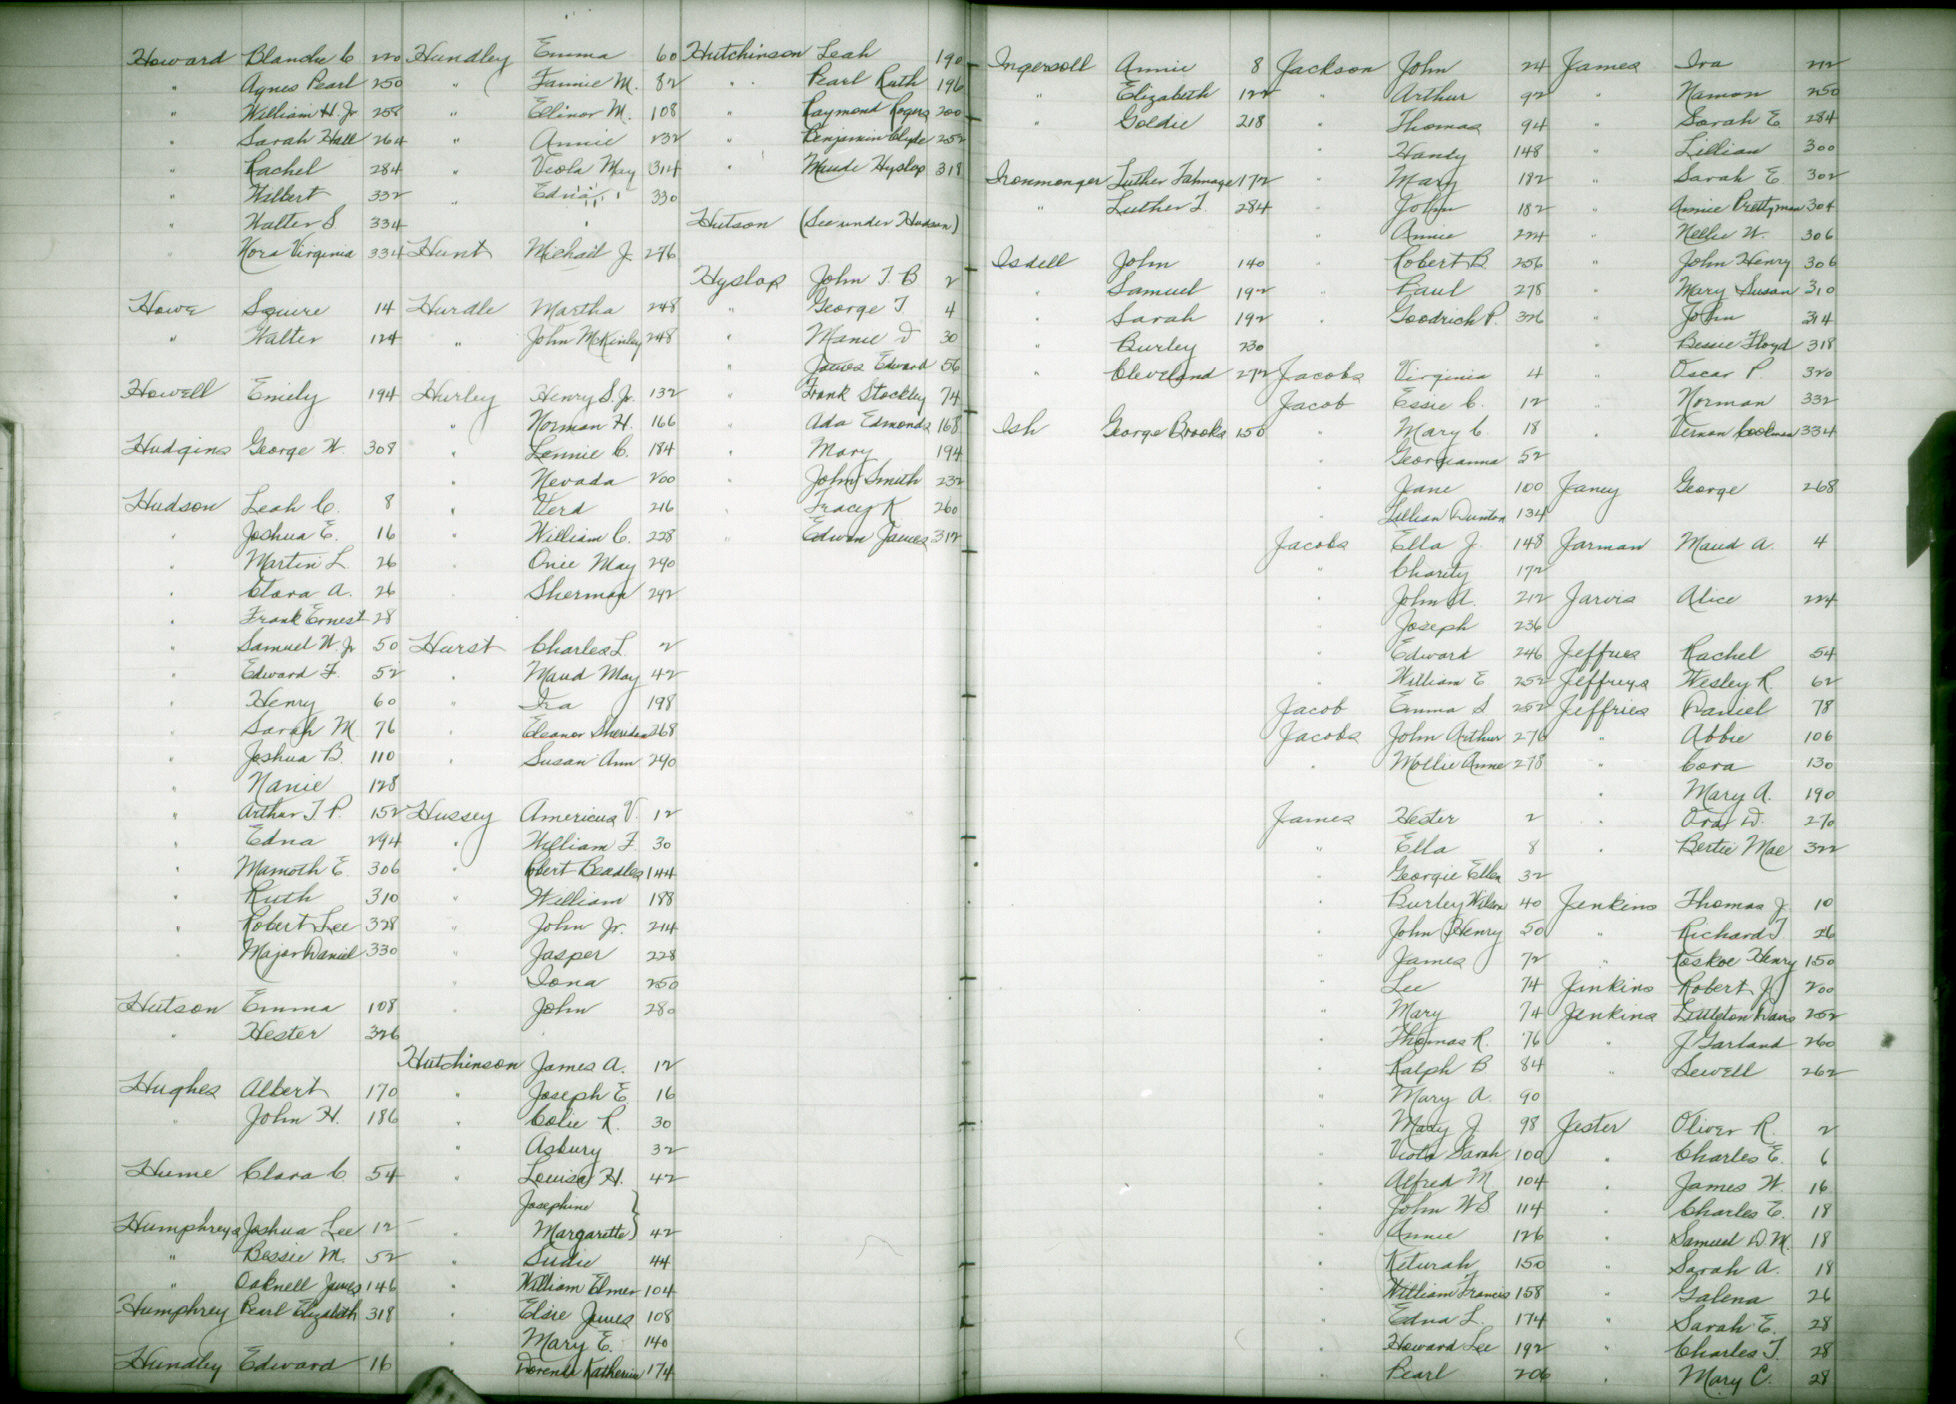 Howard Blanche C 220
" Agnes Pearl 250
" William H. Jr 258
" Sarah Hall 264
" Rachel 284
" Wilbert 332
" Walter S 334
" Nora Virginia 334
Howe Squire 14
" Walter 124
Howell Emily 194
Hudgins George W. 308
Hudson Leah C. 8
" Joshua E. 16
" Martin L. 26
" Clara A. 26
" Frank Ernest 28
" Samuel W. Jr 50
" Edward F. 52
" Henry 60
" Sarah M 76
" Joshua B. 110
" Nanie 128
" Arthur T. P. 152
" Edna 294
" Mamoth E. 306
" Ruth 310
" Robert Lee 328
" Major Daniel 330
Hutson Emma 108
" Hester 326
Hughes Albert 170
" John H. 186
Hume Clara C. 54
Humphreys Joshua Lee 12
" Bessie M. 52
" Oaknell James 146
Humphrey Pearl Elizabeth 318
Hundley Edward 16
Hundley Emma 60
" Fannie M. 82
" Elinor M. 108
" Annie 232
" Viola May 314
" Edna 330
Hunt Michail J. 276
Hurdle Martha 248
" John McKinley 248
Hurley Henry S. Jr. 132
" Norman H. 166
" Lennie C. 184
" Nevada 200
" Verd 216
" William C. 228
" Onie May 290
" Sherman 292
Hurst Charles L. 2
" Maud May 42
" Ira 198
" Eleanor Sheridan 268
" Susan Ann 290
Hussey Americus V. 12
" William F. 30
" Robert Beadles 144
" William 188
" John Jr. 214
" Jasper 228
" Iona 250
" John 280
Hutchinson James A. 12
" Joseph E. 16
" Colie R. 30
" Asbury 32
" Louisa H. 42
Josephine }
" Margarette } 42
" Sudie 44
" William Elmer 104
" Elsie James 108
" Mary E. 140
" Katherine 174
Hutchinson Leah 190
" Pearl Ruth 196
" Raymond Rogers 200
" Benjamin Clyde 252
" Maude Hyslop 318
Hutson (See under Hudson)
Hyslop John T. B 2
" George T 4
" Manie D 30
" James Edward 56
" Frank Stockley 74
" Ada Edmonds 168
" Mary 194
" John Smith 232
" Tracey K 260
" Edwin James 312
Ingersoll Annie 8
" Elizabeth 122
" Goldie 218
Ironmonger Luther Talmage 172
" Luther T. 284
Isdell John 140
" Samuel 192
" Sarah 192
" Burley 230
" Cleveland 272
Ish George Brooks 150
Jackson John 24
" Arthur 92
" Thomas 94
" Handy 148
" Mary 182
" John 182
" Annie 224
" Robert B. 256
" Paul 278
" Goodrich P. 326
Jacobs Virginia 4
Jacob Essie C. 12
" Mary C. 18
" Georgianna 52
" Jane 100
" Lillian Dunton 134
Jacobs Ella J. 148
" Charity 172
" John A. 212
" Joseph 236
" Edward 246
" William E 252
Jacob Emma S 252
Jacobs John Arthur 276
" Mollie Anne 278
James Hester 2
" Ella 8
" Georgie Ellen 32
" Burley Wilson 40
" John Henry 50
" James 72
" Lee 74
" Mary 74
" Thomas R. 76
" Ralph B 84
" Mary A. 90
" Mary J 98
" Viola Sarah 100
" Alfred M 104
" John W S. 114
" Annie 126
" Keturah 150
" William Francis 158
" Edna L. 174
" Howard Lee 192
" Pearl 206
James Ira 222
" Namon 250
" Sarah E. 284
" Lillian 300
" Sarah E. 302
" Annie Prettyman 304
" Nellie W. 306
" John Henry 306
" Mary Susan 310
" John 314
" Bessie Floyd 318
" Oscar P. 320
" Norman 332
" Vernon 334
Janey George 268
Jarman Maud A. 4
Jarvis Alice 224
Jeffries Rachel 54
Jeffreys Wesley R 62
Jeffries Daniel 78
" Abbie 106
" Cora 130
" Mary A. 190
" Ora D. 270
" Bertie Mae 322
Jenkins Thomas J. 10
" Richard T. 26
" Roskoe Henry 150
Jinkins Robert J. 200
Jenkins Littleton Davis 252
" J Garland 260
" Sewell 262
Jester Oliver R. 2
" Charles E. 6
" James W. 16
" Charles E. 18
" Samuel D. M. 18
" Sarah A. 18
" Galena 26
" Sarah E. 28
" Charles T. 28
" Mary C. 28